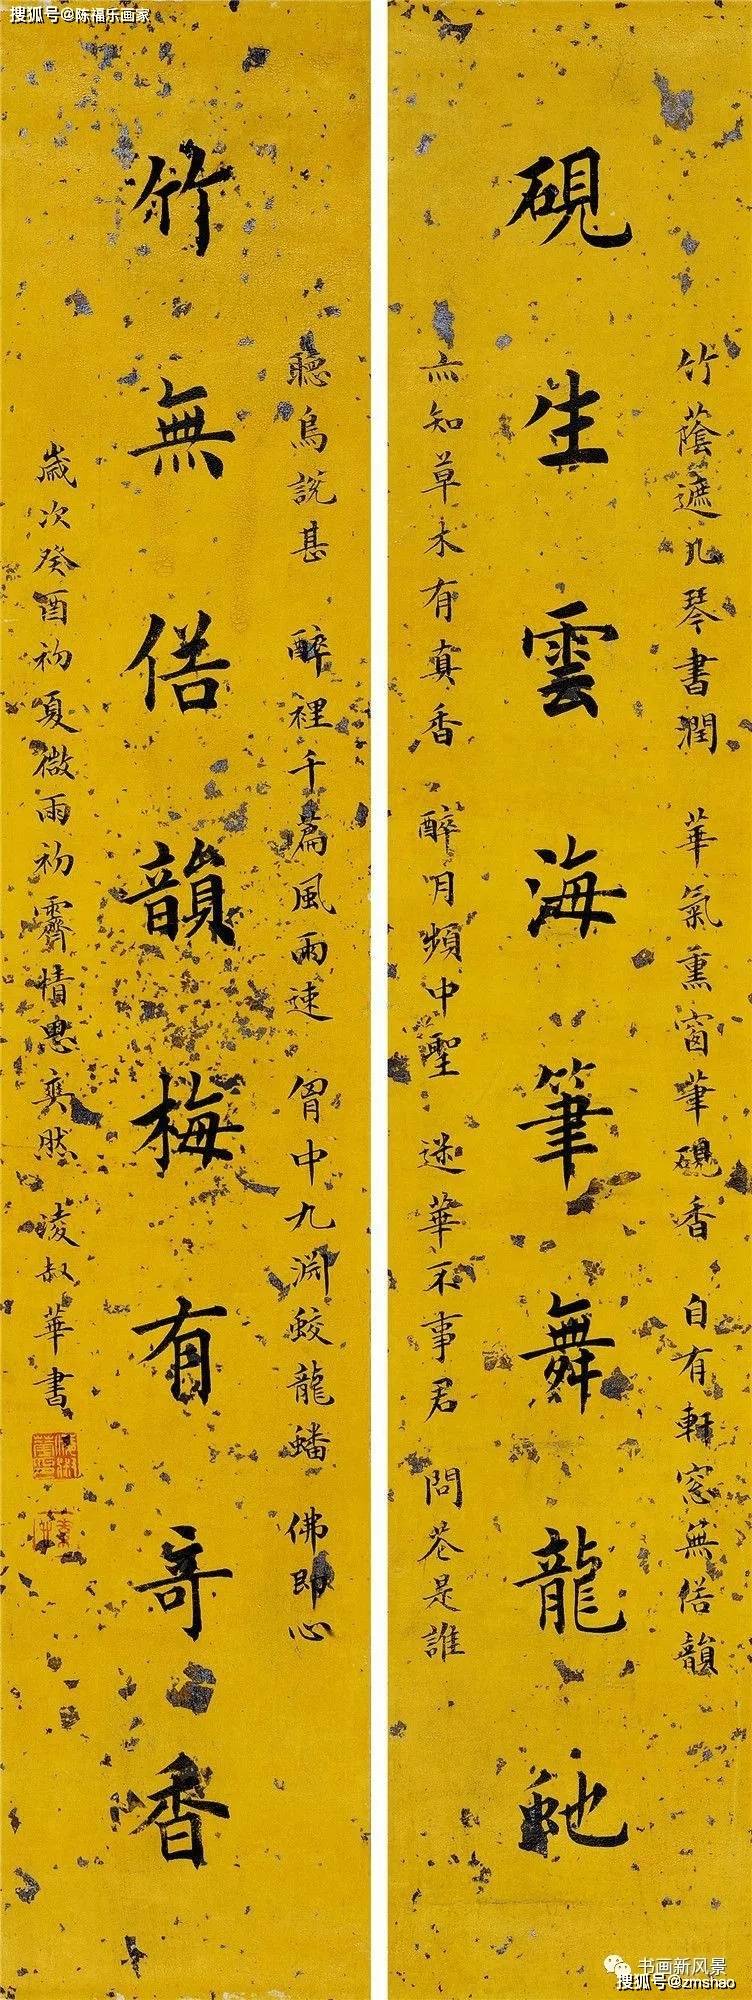 搜狐号@陈福乐画家
竹蔭遮几琴書潤 華氣熏窗筆硯香 自有軒窓無偌韻
硯生雲海筆舞龍虵
亦知草木有真香 醉月頻中聖 迷華不事君 問花是誰
聽鳥說甚 醉裡千篇風雨速 胷中九淵蛟龍蟠 佛即心
竹無偌韻梅有奇香
歲次癸酉初夏微雨初霽情思爽然 凌叔華書
书画新风景
搜狐号@zmshao